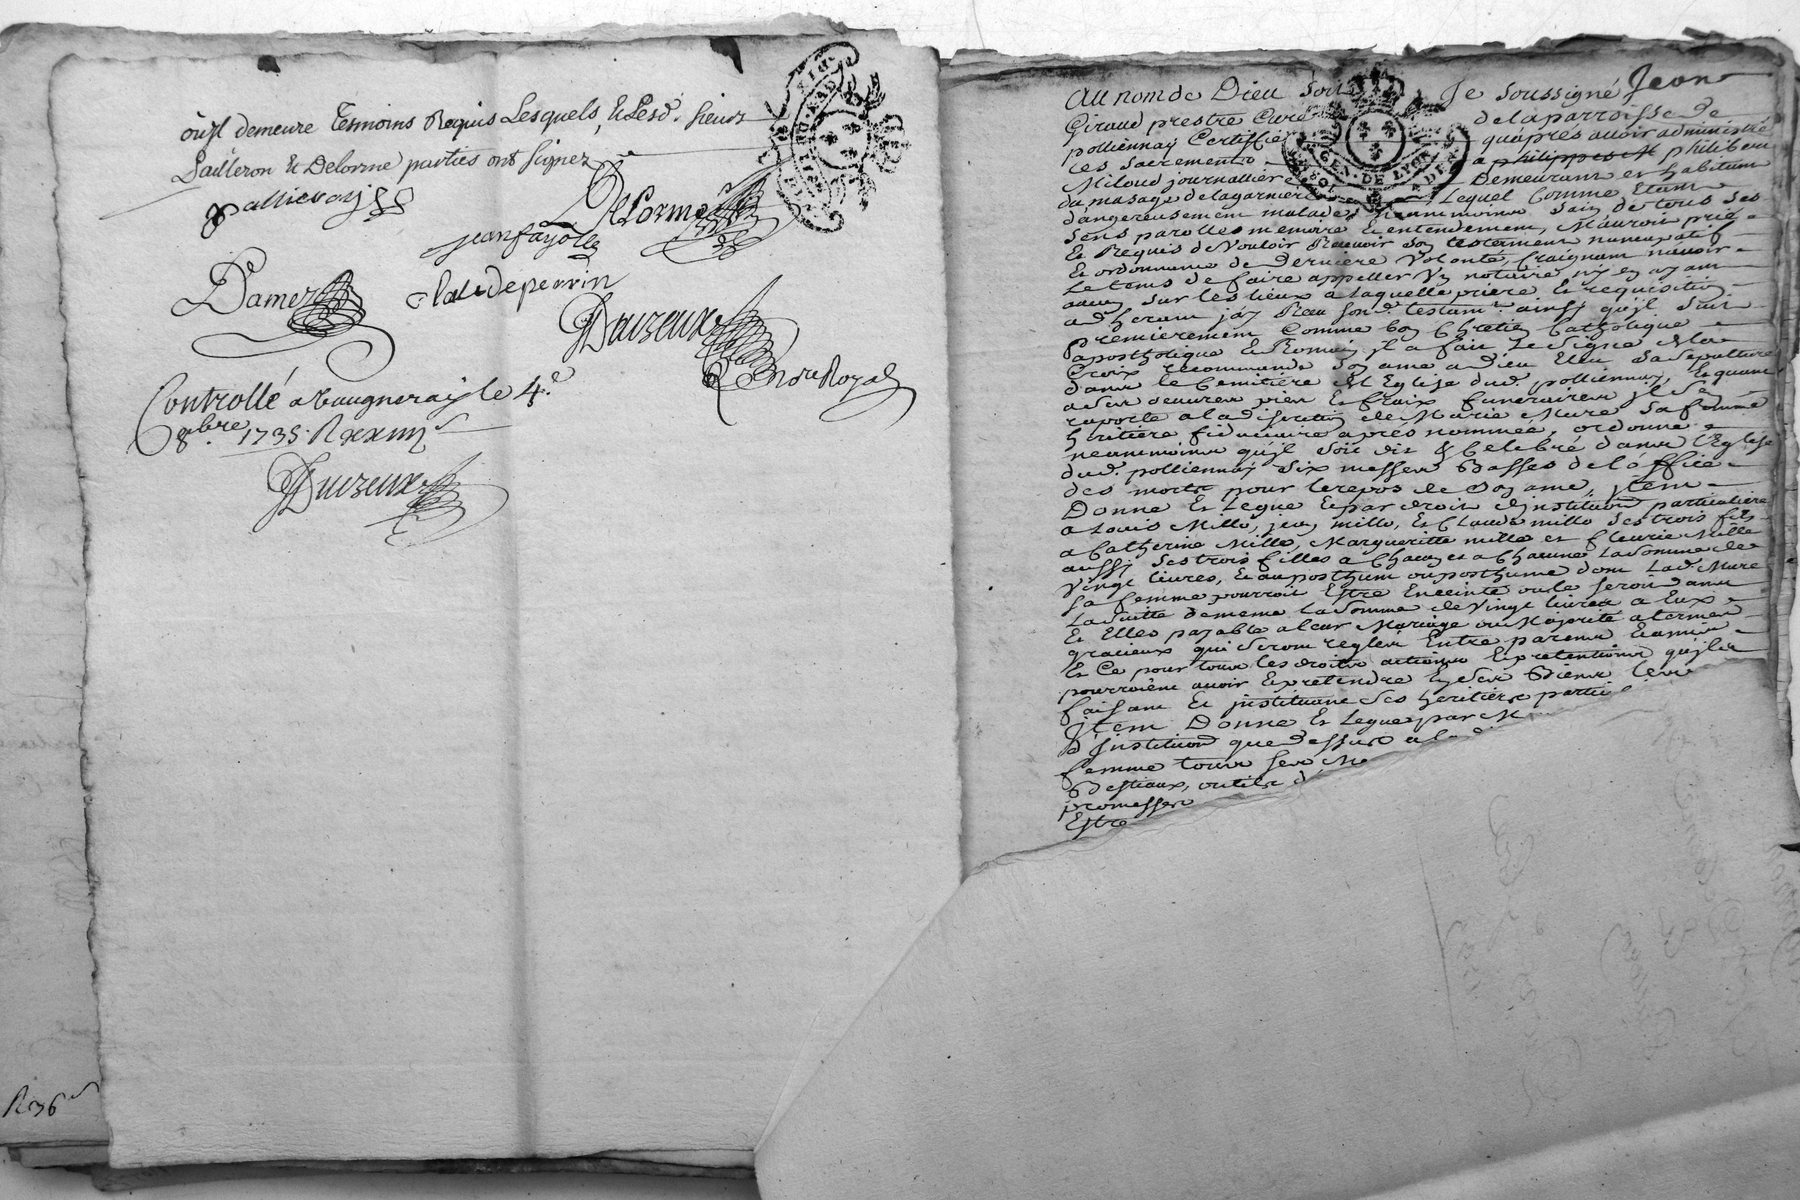 ou jl demeure Tesmoins Requis Lesquels, & Lesd. sieurs
Lailleron & Delorme parties ont signez
Delorme
jean fayolle
Damez
Clode perrin
Duizeux
no.re Royal
Controllé a Vaugneray le 4.e
8bre 1735. R xxiiij s
Duizeux
R 36 s
Au nom de Dieu soit Je soussigné Jean
Giraud prestre Curé de la parroisse de
polliennay Certiffie qu'apres auoir administré
les sacrements a philippes M philibert
Miloud journallier Demeurant et habitant
du masage de lagarniere Lequel Comme Etant
dangereusement malade, neanmoins sain de tous ses
sens parolles memoire & entendement, M'auroit prié
& Requis de Vouloir Receuoir son testament nuncupatif
& ordonnance de derniere Volonté, Craignant nauoir
Le tems de faire appeller Vn notaire, n'y en ayant
aucun sur les lieux a laquelle priere & requisition
adherant j'ay Receu son d. testamt. ainsy qu'jl suit
premierement Comme bon Chretien Catholique
apostholique & Romain jl a fait le signe de la
Croix recommandé son ame a Dieu Eleu sa sepulture
dans le Cemitiere de l'Eglise dud. polliennay, & quant
a ses oeuvres pies & fraix funeraires jl s'en
raporte a la discretion de Marie Mure sa femme
heritiere fiduciaire aprés nommée, ordonne
neanmoins qu'jl soit dit & Celebré dans l'Eglise
dud. polliennay six messes Basses de l'office
des morts pour le repos de son ame, jtem
Donne & Legue & par droit d'institution particuliere
a Louis Millo, jean millo, & Claude millo ses trois fils
a Catherine Millo, Margueritte millo et fleurie Millo
aussy ses trois filles a Chacun et a Chacune La somme de
Vingt livres, & au posthum ou posthume dont Lad. Mure
sa femme pourroit Estre Enceinte ou le seroit dans
La suitte de meme la somme de Vingt livres a Eux
& Elles payable a leur Mariage ou Majorité a termes
gracieux qui seront reglés Entre parens & amis
& Ce pour tous les droits actions & pretentions qu'jls
pourroient auoir & pretendre en ses Biens les
faisant & jnstituant ses heritiers parti
jtem Donne & Legue par M
d'jnstitution que dessus a la d
femme tous ses Me
Bestiaux, outils d
promesses
Estre